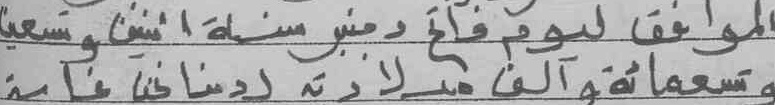 الموافق ليوم فاتح دجنبر سنة اثنين وتسعين
وتسعمائة وألف ميلادية لدينا نحن